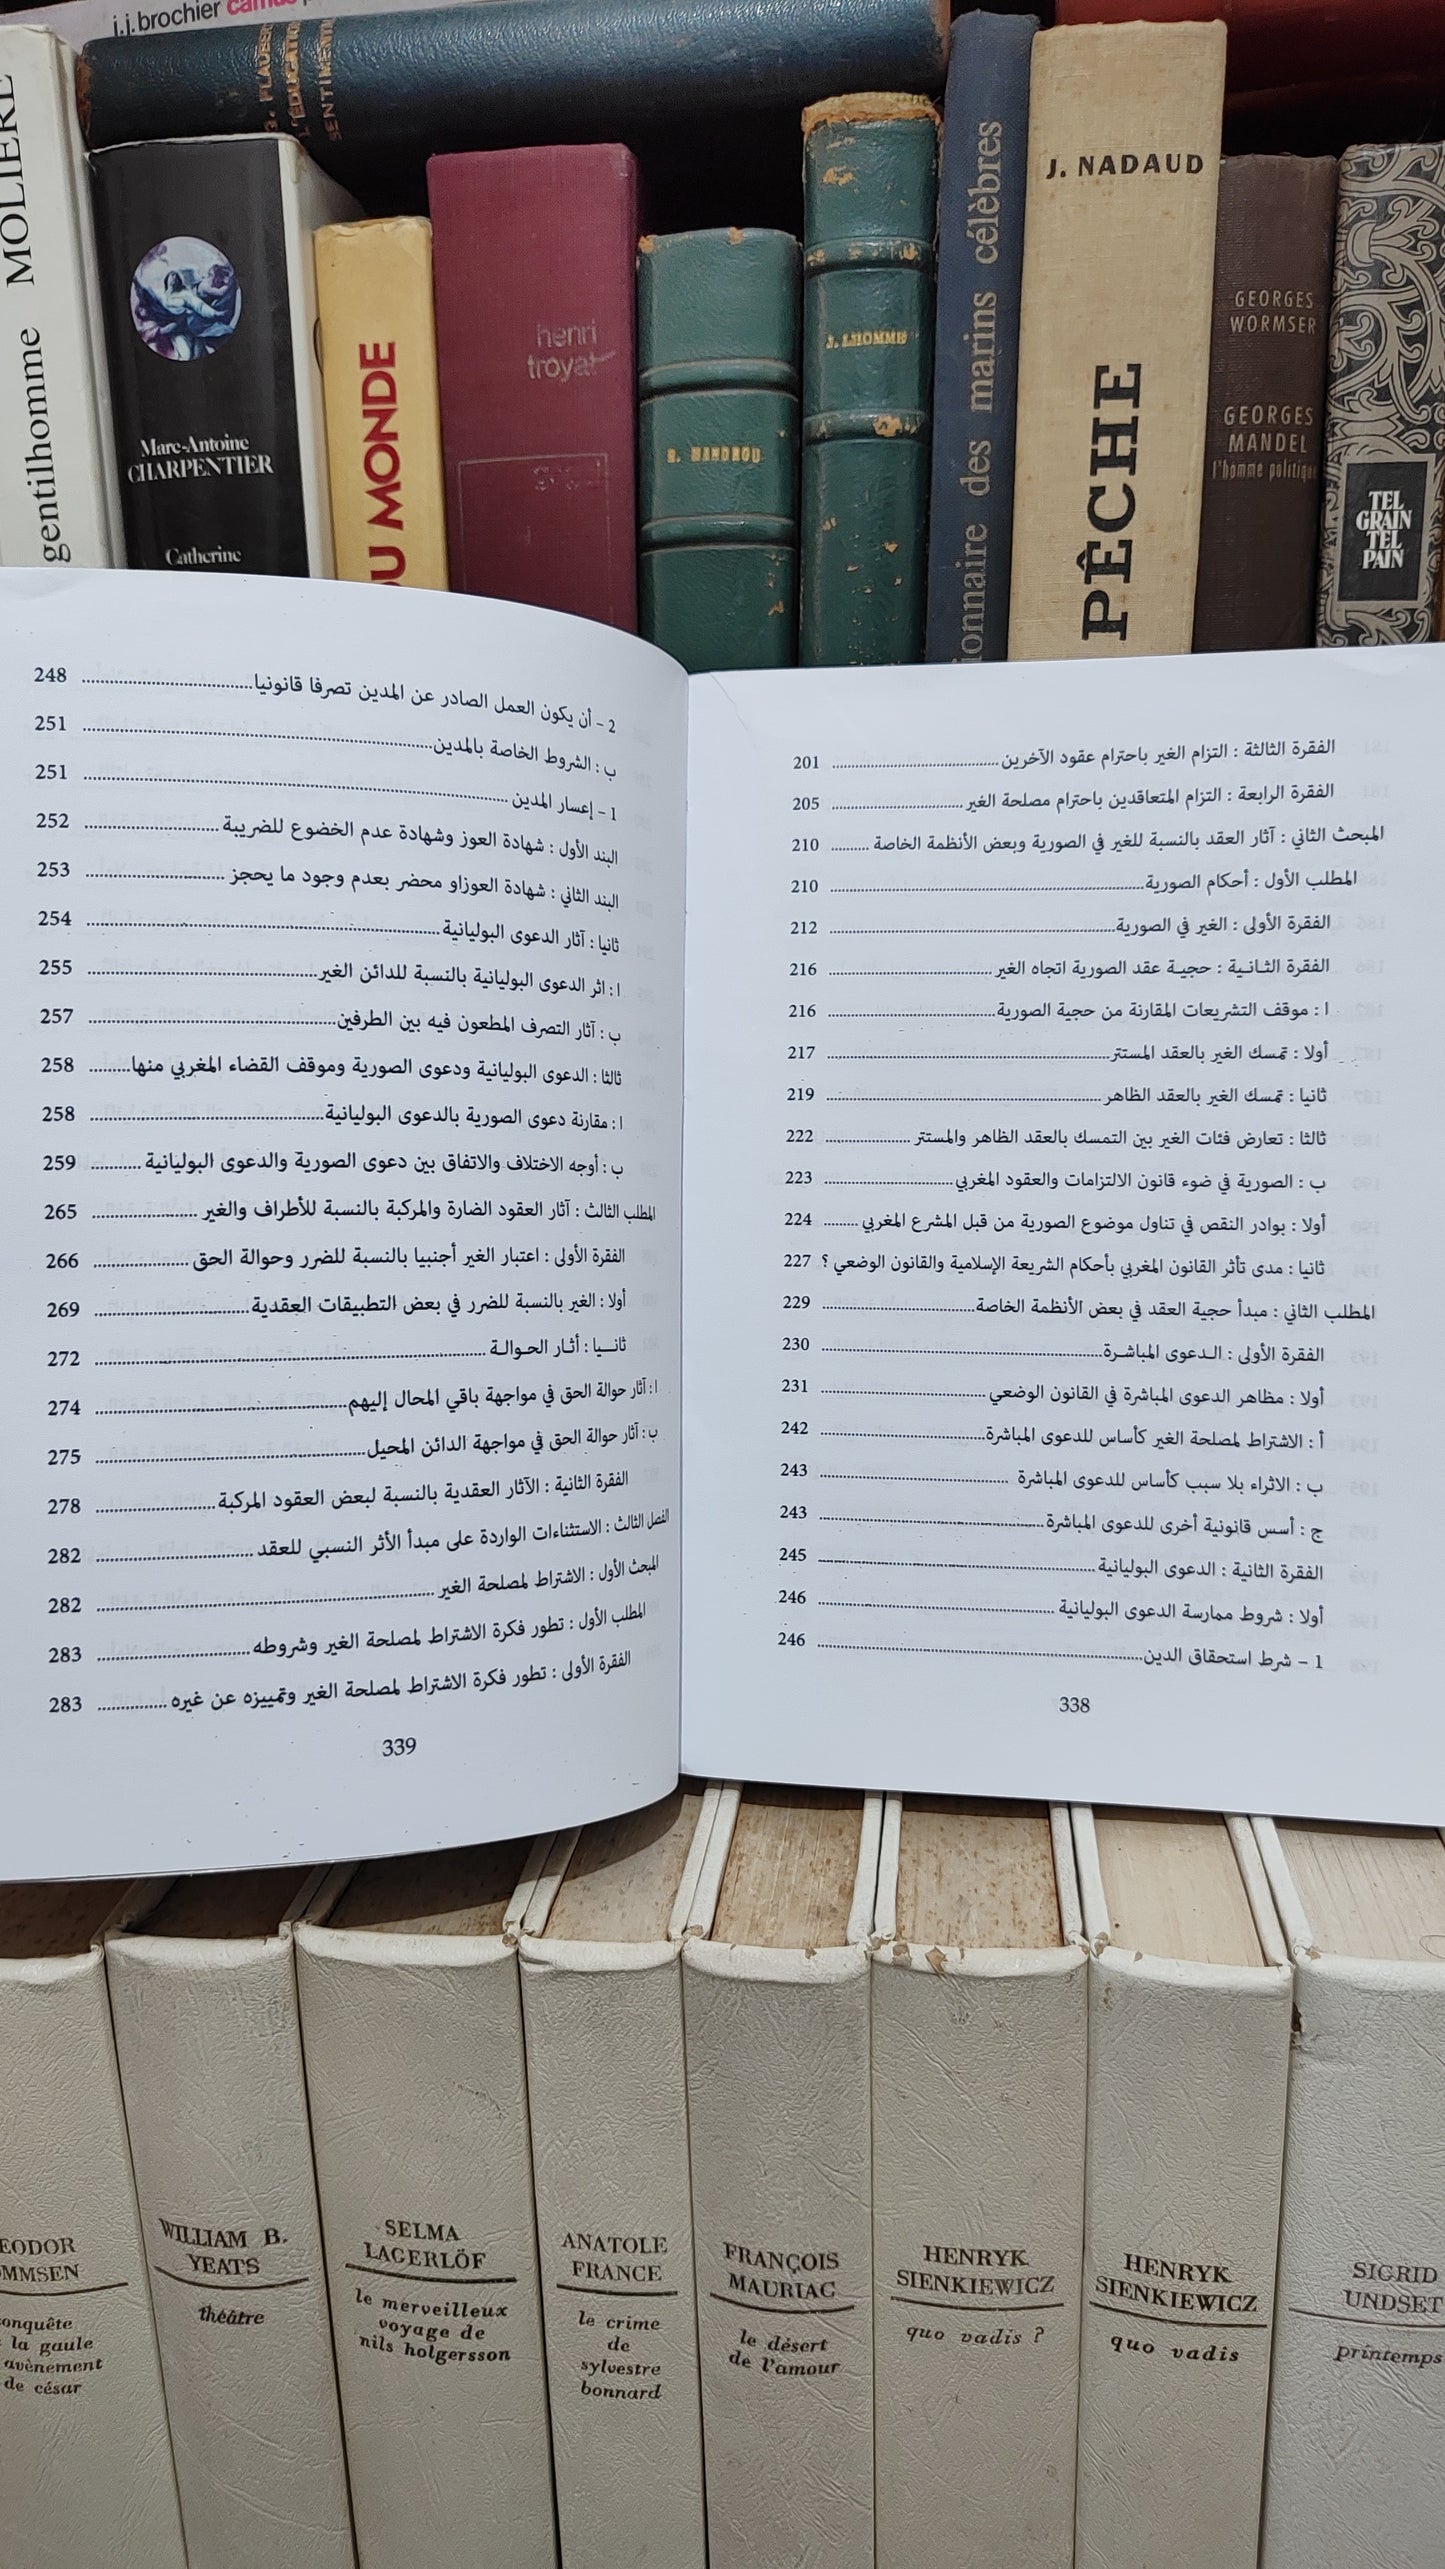 j.j. brochier camus
G. FLAUBERT
L'ÉDUCATION
SENTIMENTALE
MOLIÈRE
gentilhomme
Marc-Antoine
CHARPENTIER
Catherine
DU MONDE
henri
troyat
R. MANDROU
J. LHOMME
ionnaire des marins célèbres
J. NADAUD
PÊCHE
GEORGES
WORMSER
GEORGES
MANDEL
l'homme politique
TEL
GRAIN
TEL
PAIN
الفقرة الثالثة : التزام الغير باحترام عقود الآخرين 201
الفقرة الرابعة : التزام المتعاقدين باحترام مصلحة الغير 205
المبحث الثاني : آثار العقد بالنسبة للغير في الصورية وبعض الأنظمة الخاصة 210
المطلب الأول : أحكام الصورية 210
الفقرة الأولى : الغير في الصورية 212
الفقرة الثـانـية : حجيـة عقد الصورية اتجاه الغير 216
ا : موقف التشريعات المقارنة من حجية الصورية 216
أولا : تمسك الغير بالعقد المستتر 217
ثانيا : تمسك الغير بالعقد الظاهر 219
ثالثا : تعارض فئات الغير بين التمسك بالعقد الظاهر والمستتر 222
ب : الصورية في ضوء قانون الالتزامات والعقود المغربي 223
أولا : بوادر النقص في تناول موضوع الصورية من قبل المشرع المغربي 224
ثانيا : مدى تأثر القانون المغربي بأحكام الشريعة الإسلامية والقانون الوضعي ؟ 227
المطلب الثاني : مبدأ حجية العقد في بعض الأنظمة الخاصة 229
الفقرة الأولى : الـدعوى المباشـرة 230
أولا : مظاهر الدعوى المباشرة في القانون الوضعي 231
أ : الاشتراط لمصلحة الغير كأساس للدعوى المباشرة 242
ب : الاثراء بلا سبب كأساس للدعوى المباشرة 243
ج : أسس قانونية أخرى للدعوى المباشرة 243
الفقرة الثانية : الدعوى البوليانية 245
أولا : شروط ممارسة الدعوى البوليانية 246
1 – شرط استحقاق الدين 246
338
2 – أن يكون العمل الصادر عن المدين تصرفا قانونيا 248
ب : الشروط الخاصة بالمدين 251
1 – إعسار المدين 251
البند الأول : شهادة العوز وشهادة عدم الخضوع للضريبة 252
البند الثاني : شهادة العوزاو محضر بعدم وجود ما يحجز 253
ثانيا : آثار الدعوى البوليانية 254
ا : اثر الدعوى البوليانية بالنسبة للدائن الغير 255
ب : آثار التصرف المطعون فيه بين الطرفين 257
ثالثا : الدعوى البوليانية ودعوى الصورية وموقف القضاء المغربي منها 258
ا : مقارنة دعوى الصورية بالدعوى البوليانية 258
ب : أوجه الاختلاف والاتفاق بين دعوى الصورية والدعوى البوليانية 259
المطلب الثالث : آثار العقود الضارة والمركبة بالنسبة للأطراف والغير 265
الفقرة الأولى : اعتبار الغير أجنبيا بالنسبة للضرر وحوالة الحق 266
أولا : الغير بالنسبة للضرر في بعض التطبيقات العقدية 269
ثانـــيا : أثـار الحـوالـة 272
ا : آثار حوالة الحق في مواجهة باقي المحال إليهم 274
ب : آثار حوالة الحق في مواجهة الدائن المحيل 275
الفقرة الثانية : الآثار العقدية بالنسبة لبعض العقود المركبة 278
الفصل الثالث : الاستثناءات الواردة على مبدأ الأثر النسبي للعقد 282
المبحث الأول : الاشتراط لمصلحة الغير 282
المطلب الأول : تطور فكرة الاشتراط لمصلحة الغير وشروطه 283
الفقرة الأولى : تطور فكرة الاشتراط لمصلحة الغير وتمييزه عن غيره 283
339
EODOR
OMMSEN
onquête
la gaule
avènement
de césar
WILLIAM B.
YEATS
théâtre
SELMA
LAGERLÖF
le merveilleux
voyage de
nils holgersson
ANATOLE
FRANCE
le crime
de
sylvestre
bonnard
FRANÇOIS
MAURIAC
le désert
de l'amour
HENRYK
SIENKIEWICZ
quo vadis ?
HENRYK
SIENKIEWICZ
quo vadis
SIGRID
UNDSET
printemps